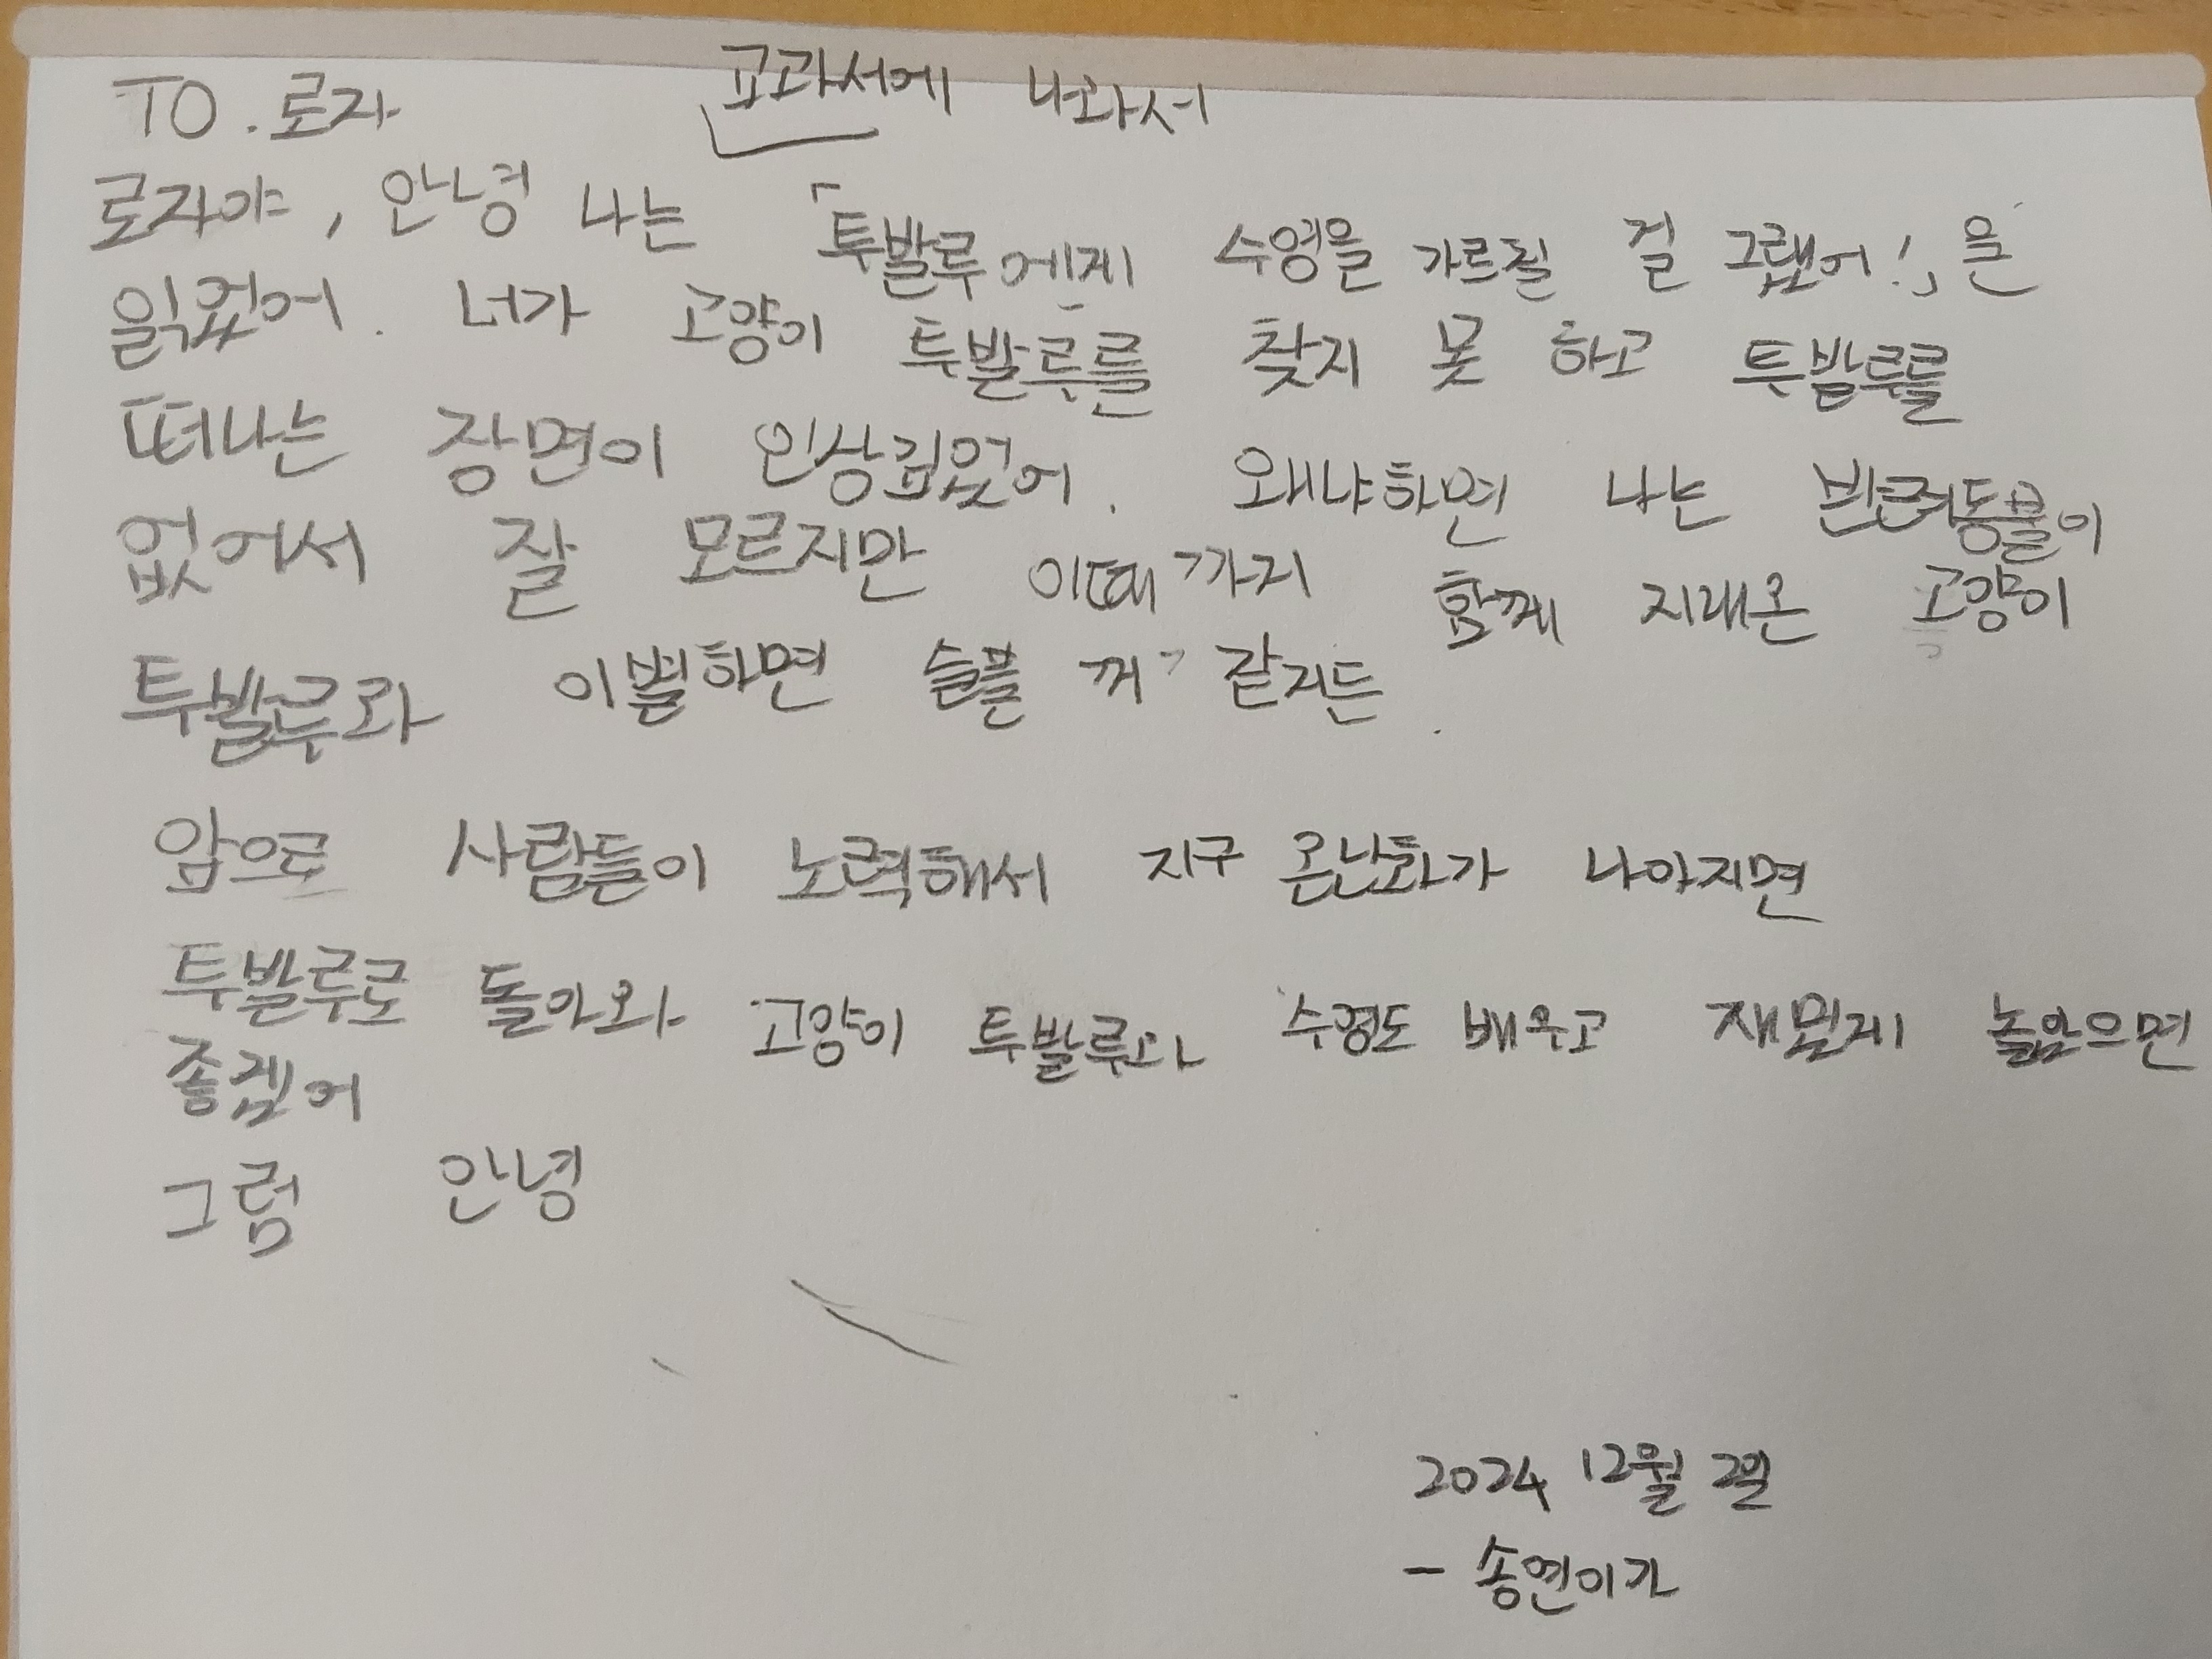 TO. 로자
교과서에 나와서
로자야, 안녕 나는 「투발루에게 수영을 가르칠 걸 그랬어!」을
읽었어. 너가 고양이 투발루를 찾지 못 하고 투발루를
떠나는 장면이 인상깊었어. 왜냐하면 나는 반려동물이
없어서 잘 모르지만 이때까지 함께 지내온 고양이
투발루와 이별하면 슬플 꺼 같거든.
앞으로 사람들이 노력해서 지구 온난화가 나아지면
투발루로 돌아와 고양이 투발루와 수영도 배우고 재밌게 놀았으면
좋겠어
그럼 안녕
2024 12월 2일
- 송연이가